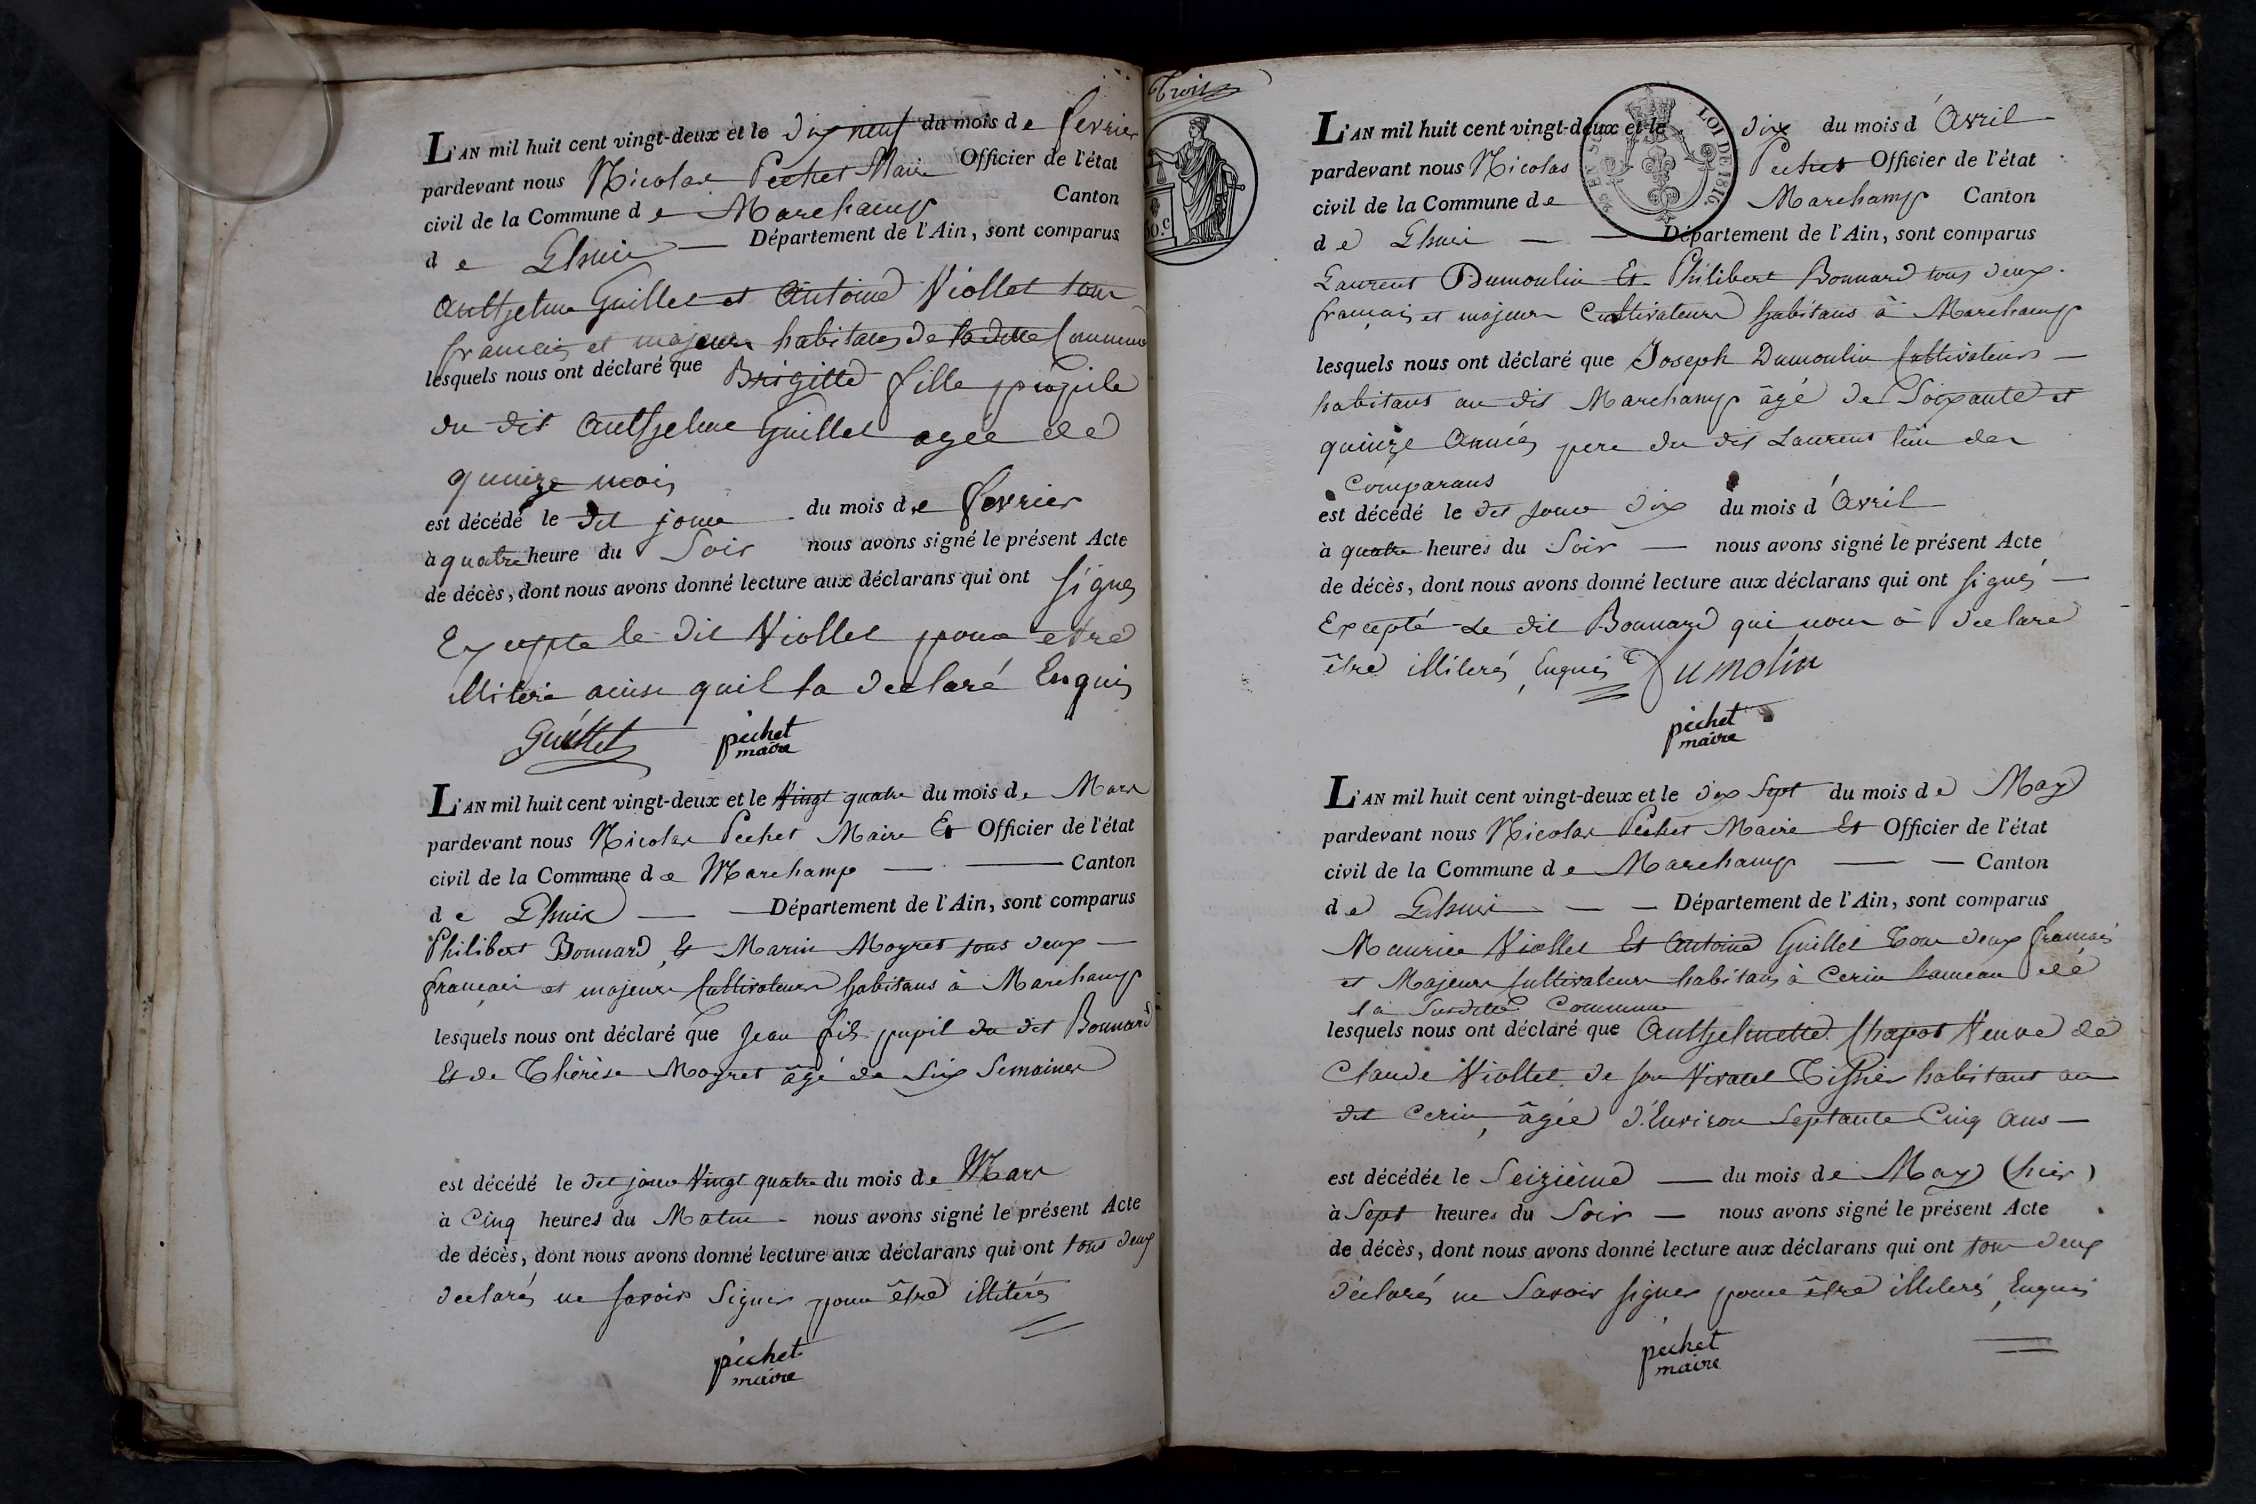 L'AN mil huit cent vingt-deux et le dix neuf du mois de fevrier
pardevant nous Nicolas Pechet Maire Officier de l'état
civil de la Commune de Marchamp Canton
de Lhuix Département de l'Ain, sont comparus
Anthelme Guillet et Antoine Viollet tous
francais et majeurs habitans de la ditte Commune
lesquels nous ont déclaré que Brigitte fille pupile
du dit Anthelme Guillet agée de
quinze mois
est décédé le dit jour du mois de fevrier
à quatre heure du Soir nous avons signé le présent Acte
de décès, dont nous avons donné lecture aux déclarans qui ont signés
Excepte le dit Viollet pour etre
illiteré ainsi quil la declaré Enquis
Guillet pechet
maire
L'AN mil huit cent vingt-deux et le Vingt quatre du mois de Mars
pardevant nous Nicolas Pechet Maire Et Officier de l'état
civil de la Commune de Marchamp Canton
de Lhuix Département de l'Ain, sont comparus
Philibert Bonnard, Et Marin Moyret tous deux
français et majeurs Cultivateurs habitans à Marchamp
lesquels nous ont déclaré que Jean fils pupil du dit Bonnard
Et de Thérèse Moyret âgé de Six Semaines
est décédé le dit jour Vingt quatre du mois de Mars
à Cinq heures du Matin nous avons signé le présent Acte
de décès, dont nous avons donné lecture aux déclarans qui ont tous deux
declarés ne savoir Signer pour être illitérés
pechet
maire
Trois
50.c
LOI DE 1816.
L'AN mil huit cent vingt-deux et le dix du mois d'Avril
pardevant nous Nicolas Pechet Officier de l'état
civil de la Commune de Marchamp Canton
de Lhuix Département de l'Ain, sont comparus
Laurent Dumoulin Et Philibert Bonnard tous deux
français et majeurs Cultivateurs habitans à Marchamp
lesquels nous ont déclaré que Joseph Dumoulin Cultivateur
habitant au dit Marchamp âgé de Soixante et
quinze Années pere du dit Laurent l'un des
Comparans
est décédé le dit jour dix du mois d'Avril
à quatre heures du Soir nous avons signé le présent Acte
de décès, dont nous avons donné lecture aux déclarans qui ont signés
Excepté Le dit Bonnard qui nous à declaré
être illiterés, Enquis Dumolin
pechet
maire
L'AN mil huit cent vingt-deux et le dix Sept du mois de May
pardevant nous Nicolas Pechet Maire Et Officier de l'état
civil de la Commune de Marchamp Canton
de Lhuix Département de l'Ain, sont comparus
Maurice Viollet Et Antoine Guillet Tous deux français
et Majeurs Cultivateurs habitans à Cerin hameau de
la Susditte Commune
lesquels nous ont déclaré que Anthelmette Chapot Veuve de
Claude Viollet de son Vivant Tissier habitant au
dit Cerin, âgée d'Environ Septante Cinq ans
est décédée le Seizieme du mois de May (hier)
à Sept heures du Soir nous avons signé le présent Acte
de décès, dont nous avons donné lecture aux déclarans qui ont tous deux
déclarés ne Savoir signer pour être illiterés, Enquis
pechet
maire